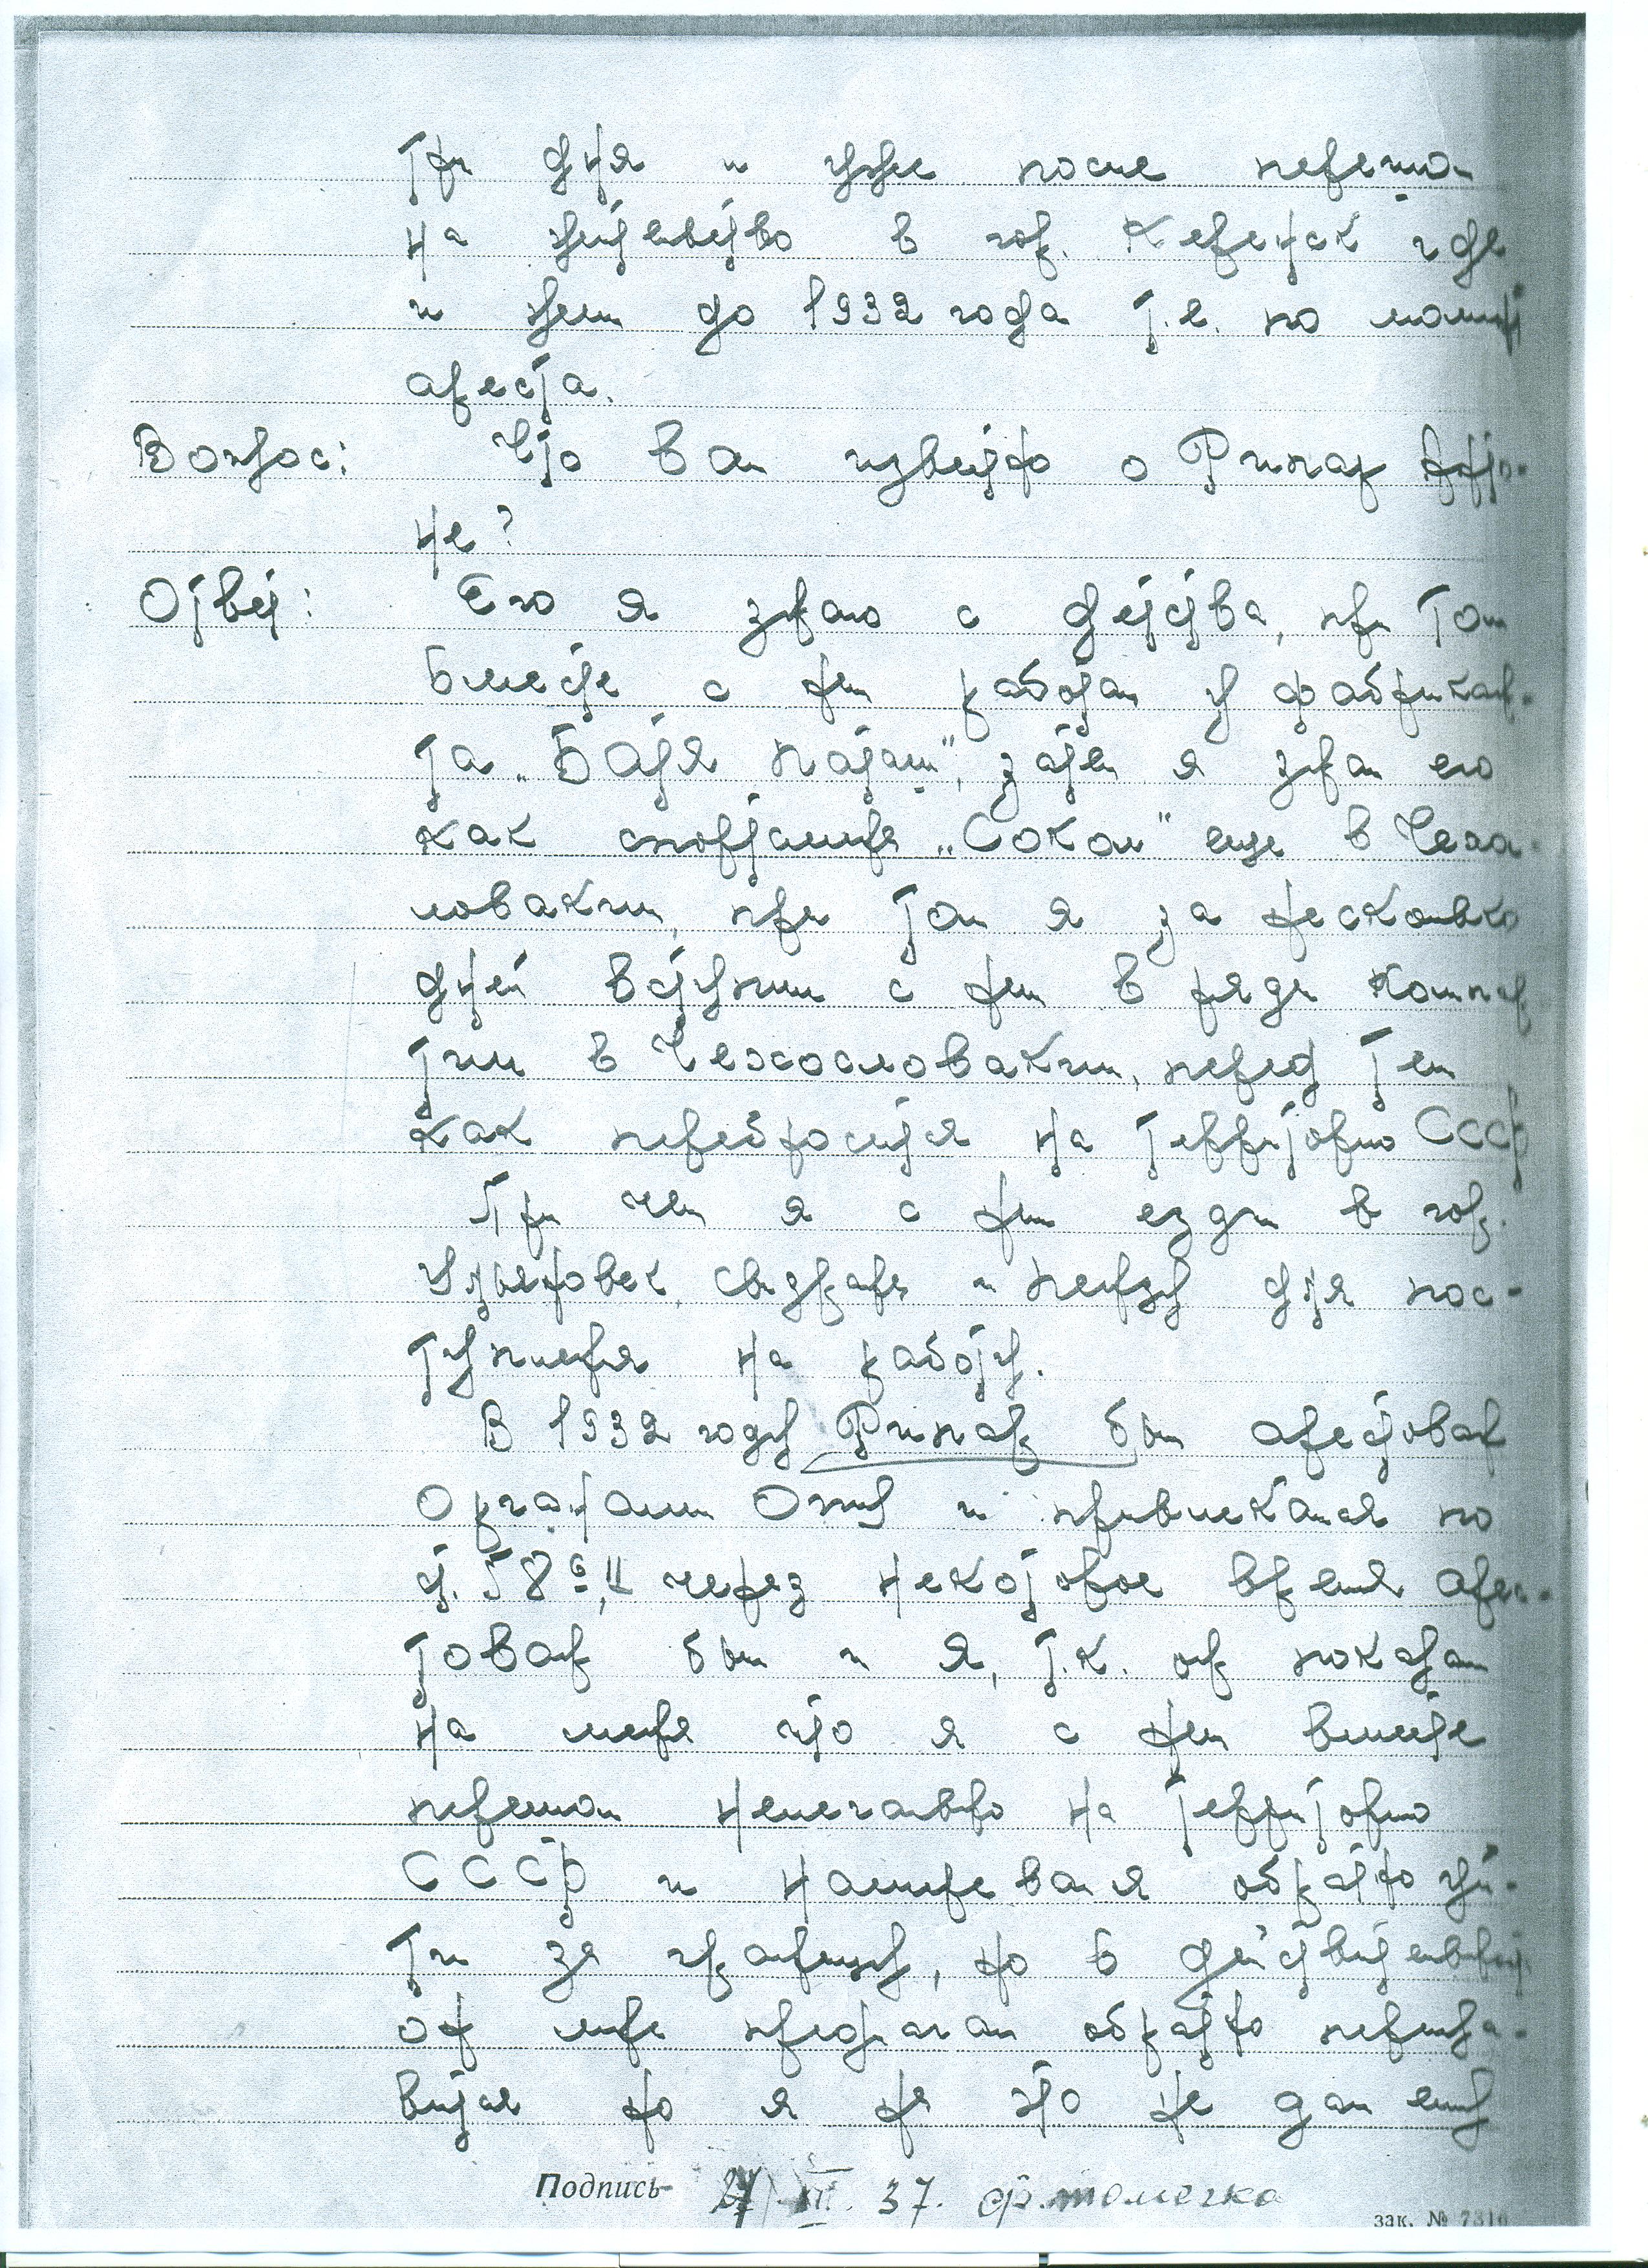 три дня и уже после перешол
на жительство в гор. Керенск где
и жил до 1932 года т.е. по момент
ареста.
Вопрос: Что Вам известно о Рипар Анто-
не?
Ответ: Его я знаю с детства, при том
вместе с ним работал у фабрикан-
та "Батя патати", затем я знал его
как спортсмена "Сокол" еще в Чехо-
ловакии, при том я за несколько
дней вступил с ним в ряды компар
тии в Чехословакии, перед тем
как переброситься на территорию СССР
При чем я с ним ездил в гор.
для пос-
тупления на работу.
В 1932 году Рипар был арестован
Органами ОГПУ и привлекался по
ст. 58 6,11 через некоторое время арес-
тован был и я, т.к. он показал
на меня что я с ним вместе
перешол нелегально на территорию
СССР и намеревался обратно уй-
ти за границу, но в действительной
он мне предлагал обратно перепра-
виться но я на это не дал ему
Подпись 27/XII. 37. Фр. томечка
зак. № 7316